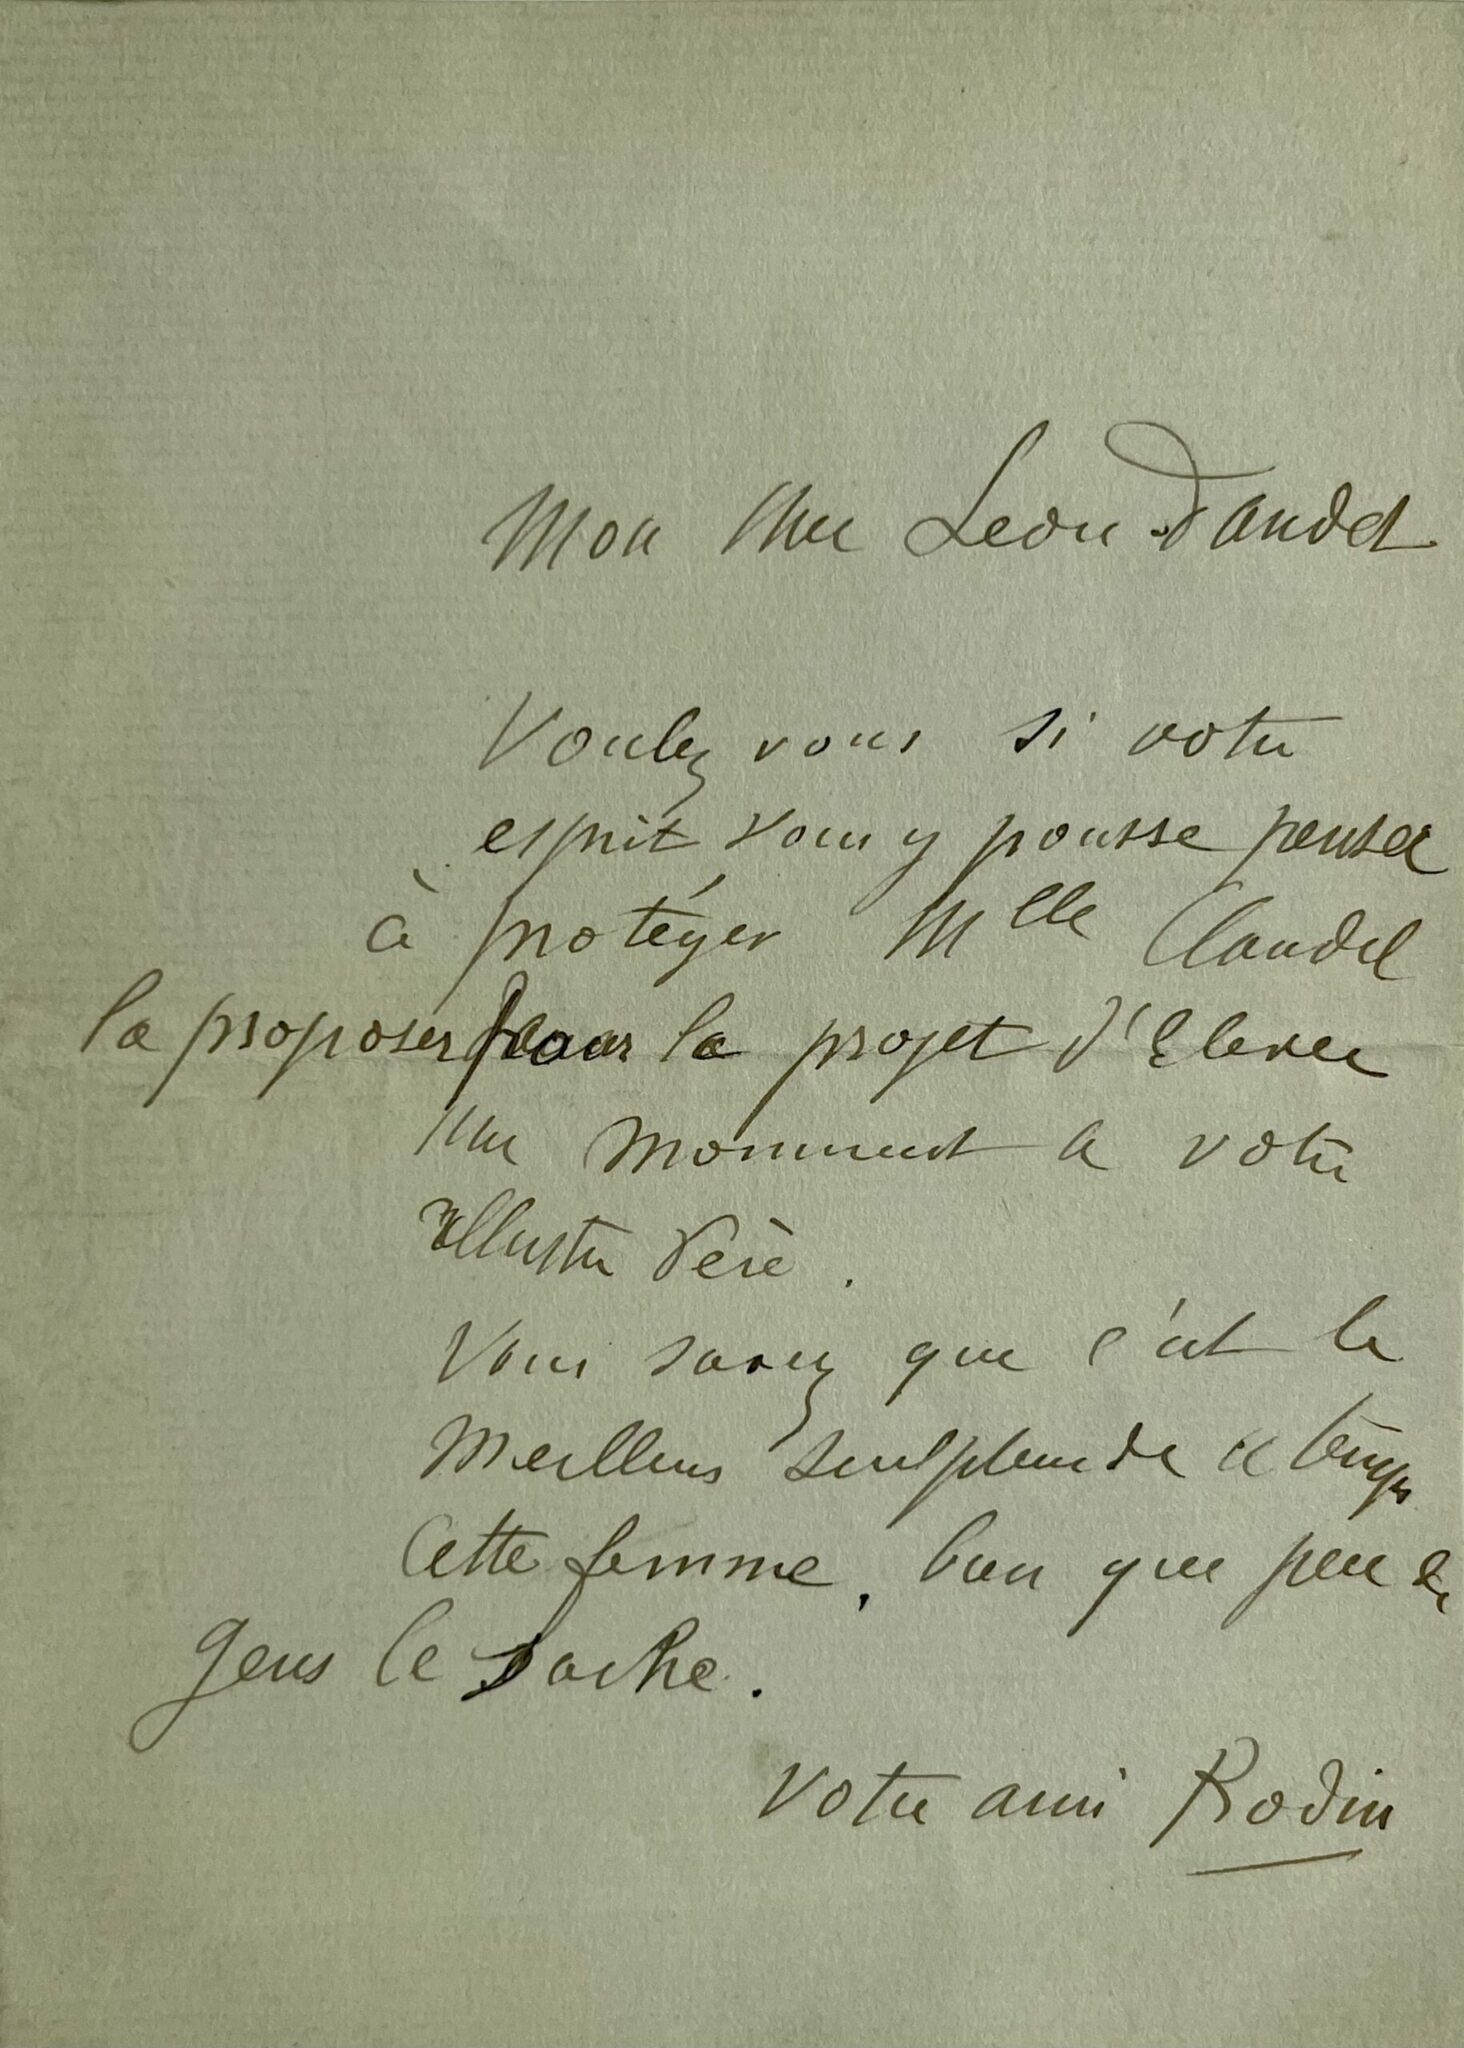 Mon cher Leon Daudet
Voulez vous si votre
esprit vous y pousse penser
à protéger Mlle Claudel
la proposer pour le projet d'Elever
un monument a votre
illustre Père.
Vous savez que c'est le
meilleur sculpteur de ce temps
Cette femme, bien que peu de
gens le sache.
Votre ami Rodin